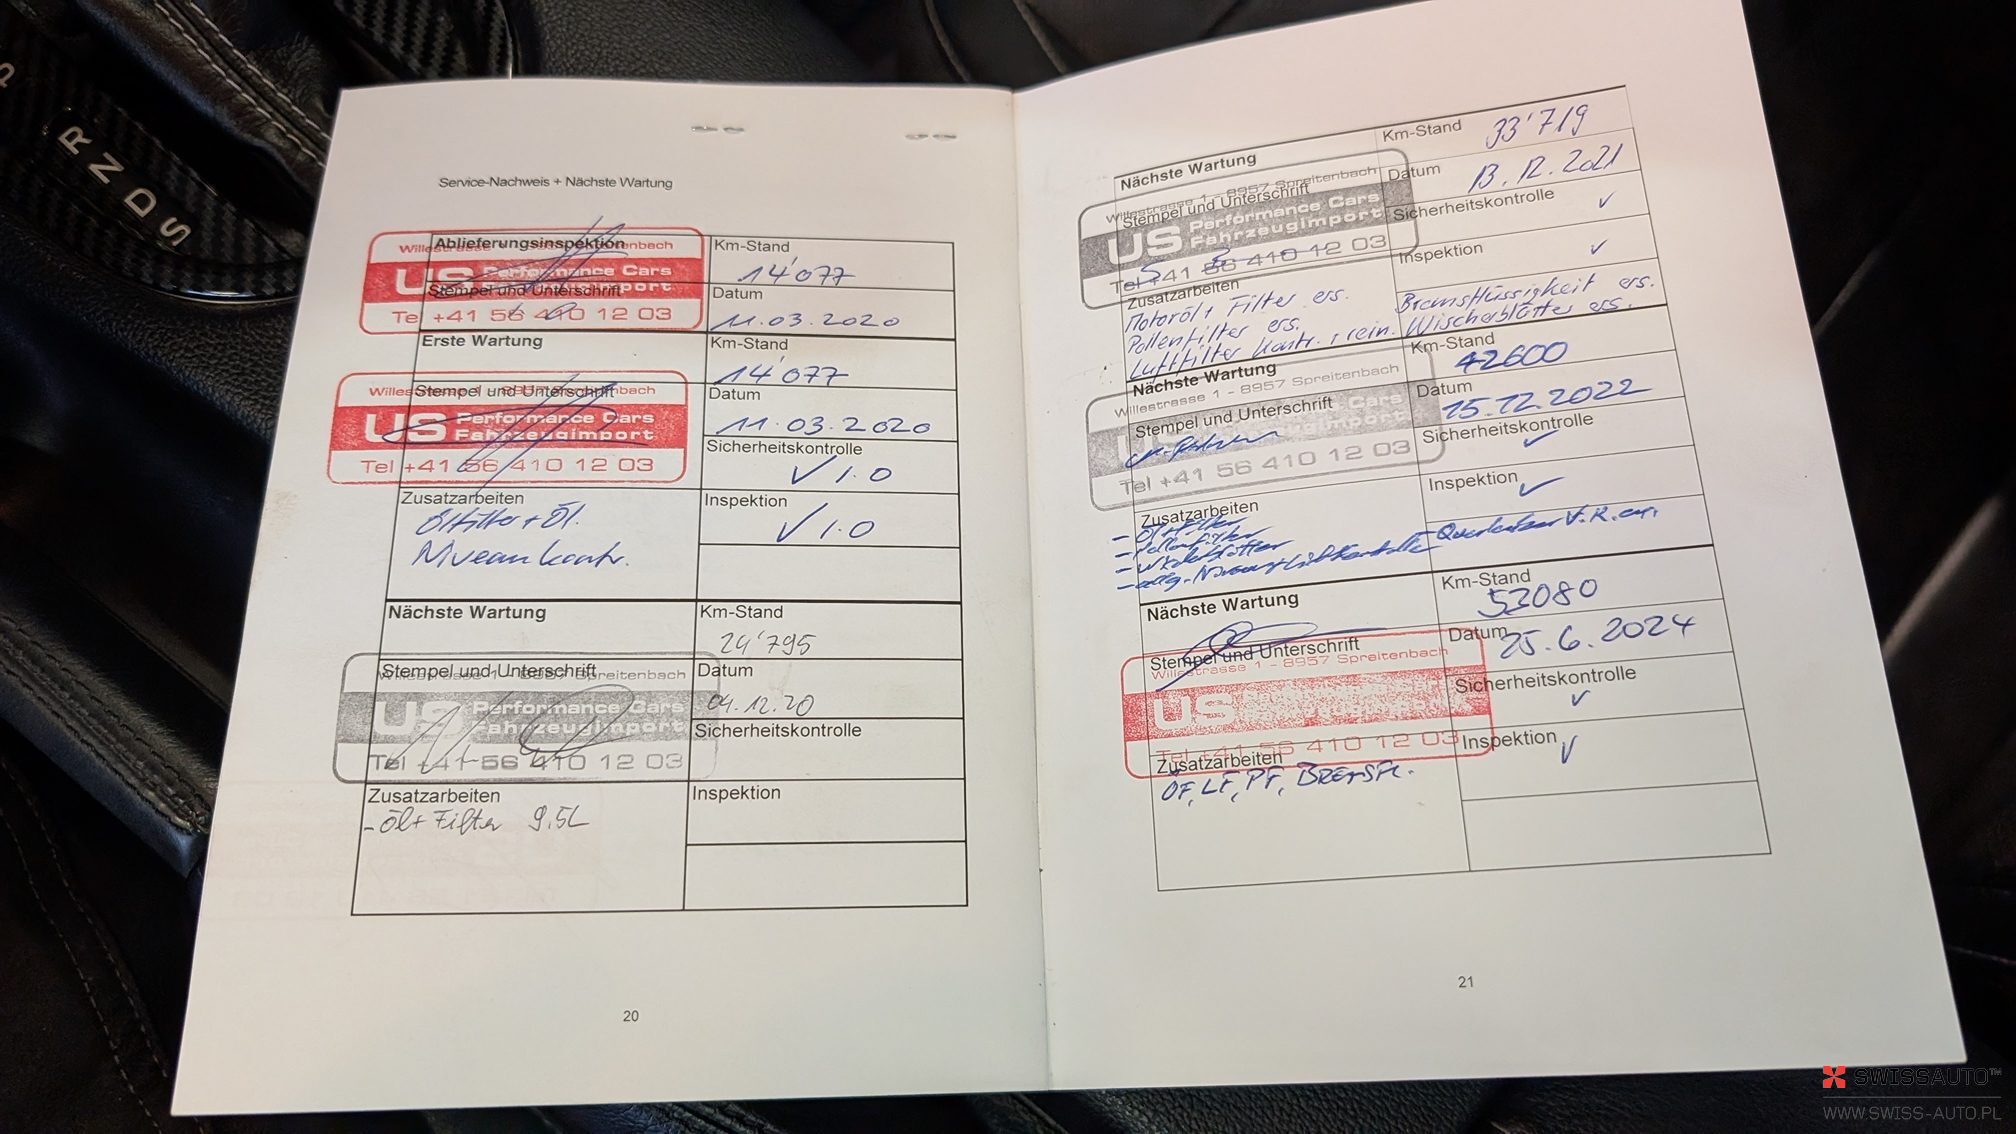 R
N
D
S
Service-Nachweis + Nächste Wartung
Ablieferungsinspektion
Willestrasse 1 - 8957 Spreitenbach
US Performance Cars
Fahrzeugimport
Stempel und Unterschrift
Tel +41 56 410 12 03
Km-Stand
14'077
Datum
11.03.2020
Erste Wartung
Km-Stand
14'077
Willestrasse 1 - 8957 Spreitenbach
Stempel und Unterschrift
US Performance Cars
Fahrzeugimport
Tel +41 56 410 12 03
Datum
11.03.2020
Sicherheitskontrolle
✓ 1.0
Zusatzarbeiten
Ölfilter + Öl.
Niveau kontr.
Inspektion
✓ 1.0
Nächste Wartung
Km-Stand
24'795
Stempel und Unterschrift
Willestrasse 1 - 8957 Spreitenbach
US Performance Cars
Fahrzeugimport
Tel +41 56 410 12 03
Datum
04.12.20
Sicherheitskontrolle
Zusatzarbeiten
- Öl + Filter 9,5L
Inspektion
20
Nächste Wartung
Km-Stand
33'719
Willestrasse 1 - 8957 Spreitenbach
Stempel und Unterschrift
US Performance Cars
Fahrzeugimport
Tel +41 56 410 12 03
Datum
13.12.2021
Sicherheitskontrolle ✓
Inspektion ✓
Zusatzarbeiten
Motoröl + Filter ers.
Pollenfilter ers.
Luftfilter kontr., rein.
Bremsflüssigkeit ers.
Wischerblätter ers.
Nächste Wartung
Km-Stand
42600
Willestrasse 1 - 8957 Spreitenbach
Stempel und Unterschrift
US Performance Cars
Fahrzeugimport
Tel +41 56 410 12 03
Datum
15.12.2022
Sicherheitskontrolle
✓
Inspektion ✓
Zusatzarbeiten
- Öl + Filter
- Pollenfilter
- Wischerblätter
- Querlenker V.R.
Nächste Wartung
Km-Stand
53080
Stempel und Unterschrift
Willestrasse 1 - 8957 Spreitenbach
US
Tel +41 56 410 12 03
Datum
25.6.2024
Sicherheitskontrolle
✓
Inspektion ✓
Zusatzarbeiten
ÖF, LF, PF, Bremsfl.
21
SWISSAUTO™
WWW.SWISS-AUTO.PL